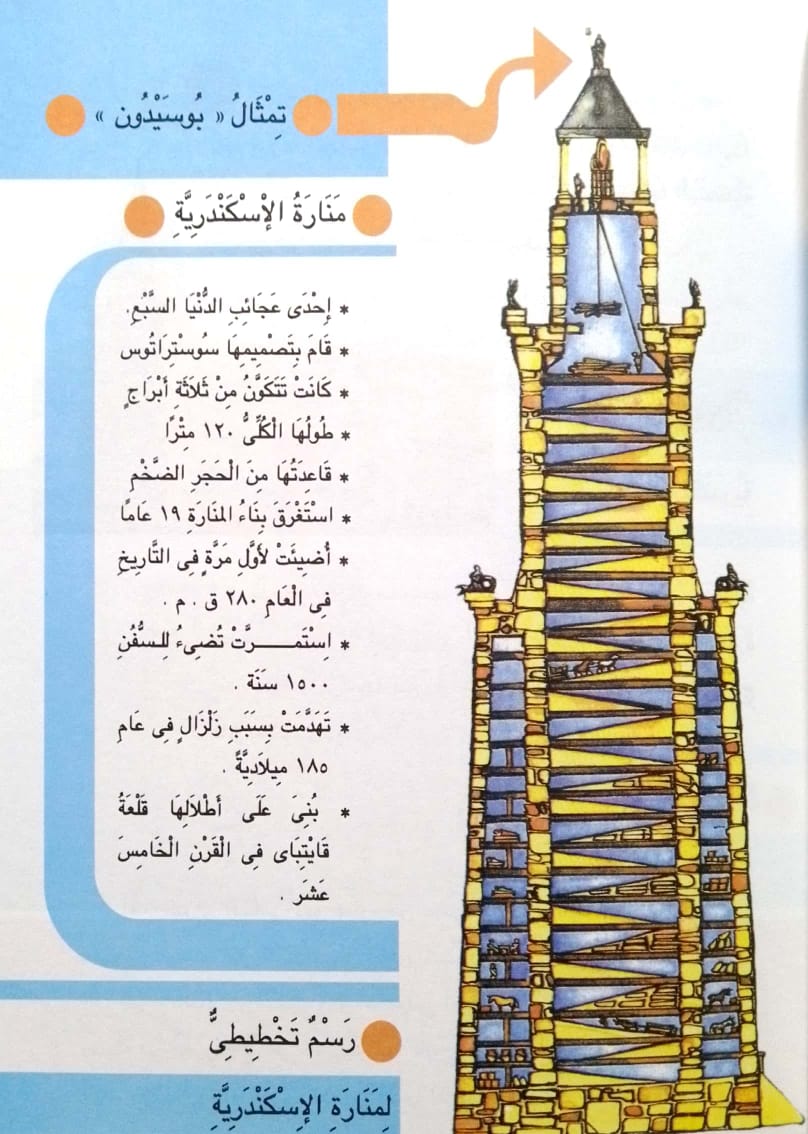 تِمْثَالُ « بُوسَيْدُون »
مَنَارَةُ الإْسْكَنْدَرِيَّةِ
* إِحْدَى عَجَائِبِ الدُّنْيَا السَّبْعِ.
* قَامَ بِتَصْمِيمِهَا سُوسْتِرَاتُوس
* كَانَتْ تَتَكَوَّنُ مِنْ ثَلاَثَةِ أَبْرَاجٍ
* طُولُهَا الْكُلِّىُّ ١٢٠ مِتْرًا
* قَاعِدَتُهَا مِنَ الْحَجَرِ الضَّخْمِ
* اسْتَغْرَقَ بِنَاءُ المْنَارَةِ ١٩ عَامًا
* أُضِيئَتْ لأَوَّلِ مَرَّةٍ فِى التَّارِيخِ
فِى الْعَامِ ٢٨٠ ق . م .
* اِسْتَمَرَّتْ تُضِىءُ لِلسُّفُنِ
١٥٠٠ سَنَة .
* تَهَدَّمَتْ بِسَبَبِ زَلْزَالٍ فِى عَامِ
١٨٥ مِيلَادِيَّةً .
* بُنِىَ عَلَى أَطْلاَلِهَا قَلْعَةُ
قَايْتِبَاى فِى الْقَرْنِ الْخَامِسَ
عَشَر .
رَسْمٌ تَخْطِيطِىٌّ
لِمَنَارَةِ الإِسْكَنْدَرِيَّةِ